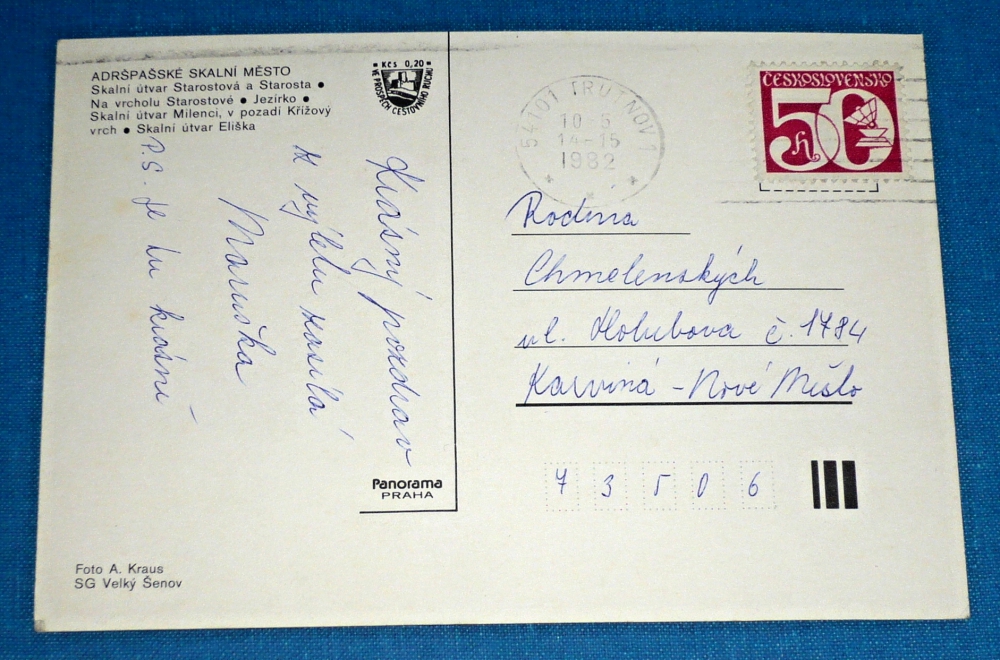 ADRŠPAŠSKÉ SKALNÍ MĚSTO
Skalní útvar Starostová a Starosta •
Na vrcholu Starostové • Jezírko •
Skalní útvar Milenci, v pozadí Křížový
vrch • Skalní útvar Eliška
Kčs 0,20
VE PROSPĚCH CESTOVNÍHO RUCHU
Krásný pozdrav
z výletu zasílá
Maruška
P.S. Je tu krásně
Panorama
PRAHA
Foto A. Kraus
SG Velký Šenov
541 01 TRUTNOV 1
10.-5
14-15
1982
ČESKOSLOVENSKO
50 h
Rodina
Chmelenských
ul. Holubova č. 1784
Karviná - Nové Město
73506